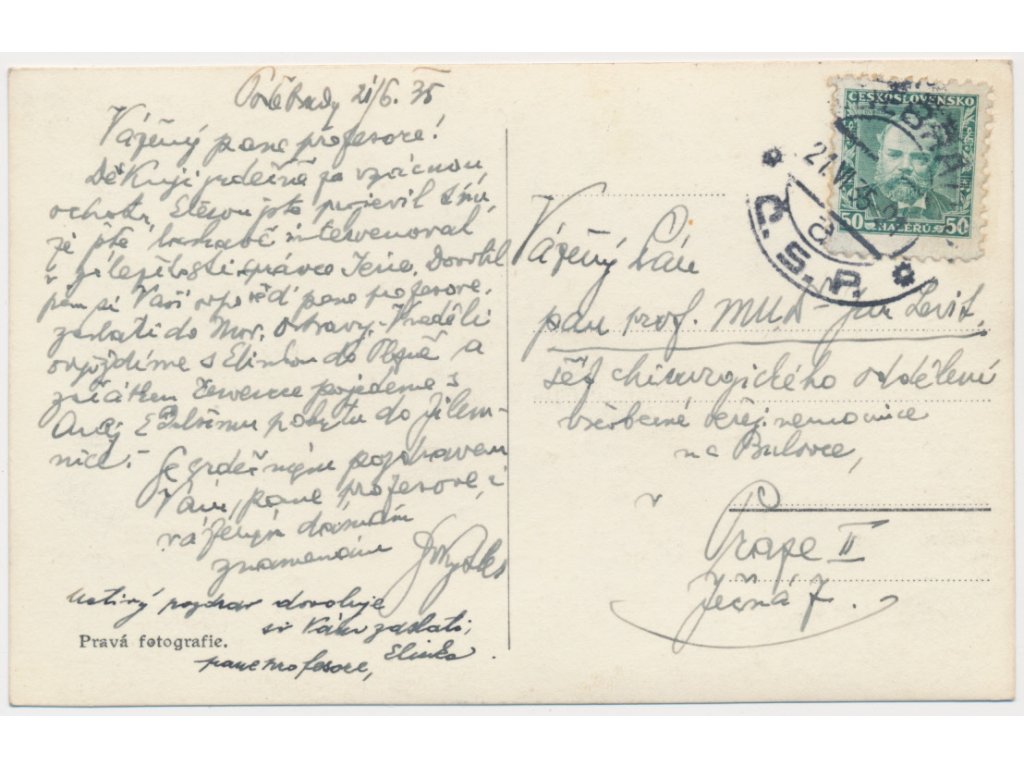 Poděbrady 21/6. 35
Vážený pane profesore!
Děkuji srdečně za vzácnou
ochotu, kterou jste projevil
že jste intervenoval
v záležitosti správce Dovolil
jsem si Vaši odpověď pane profesore,
zaslati do Mor. Ostravy. V neděli
odjíždíme s Elinkou do Plzně a
začátkem července pojedeme s
pobytu do Jilem-
nice.-
Se srdečným pozdravem
Vám, pane profesore, i
váženým dámám
znamenám
Uctivý pozdrav dovoluje
si Vám zaslati,
pane profesore, Elinka.
Pravá fotografie.
ČESKOSLOVENSKO
50 HALÉŘŮ 50
21.VI.35
P. S. P.
Vážený Pán
pan prof. MUDr Jan Levit,
šéf chirurgického oddělení
všeobecné veřej. nemocnice
na Bulovce,
v
Praze II
Ječná 7.